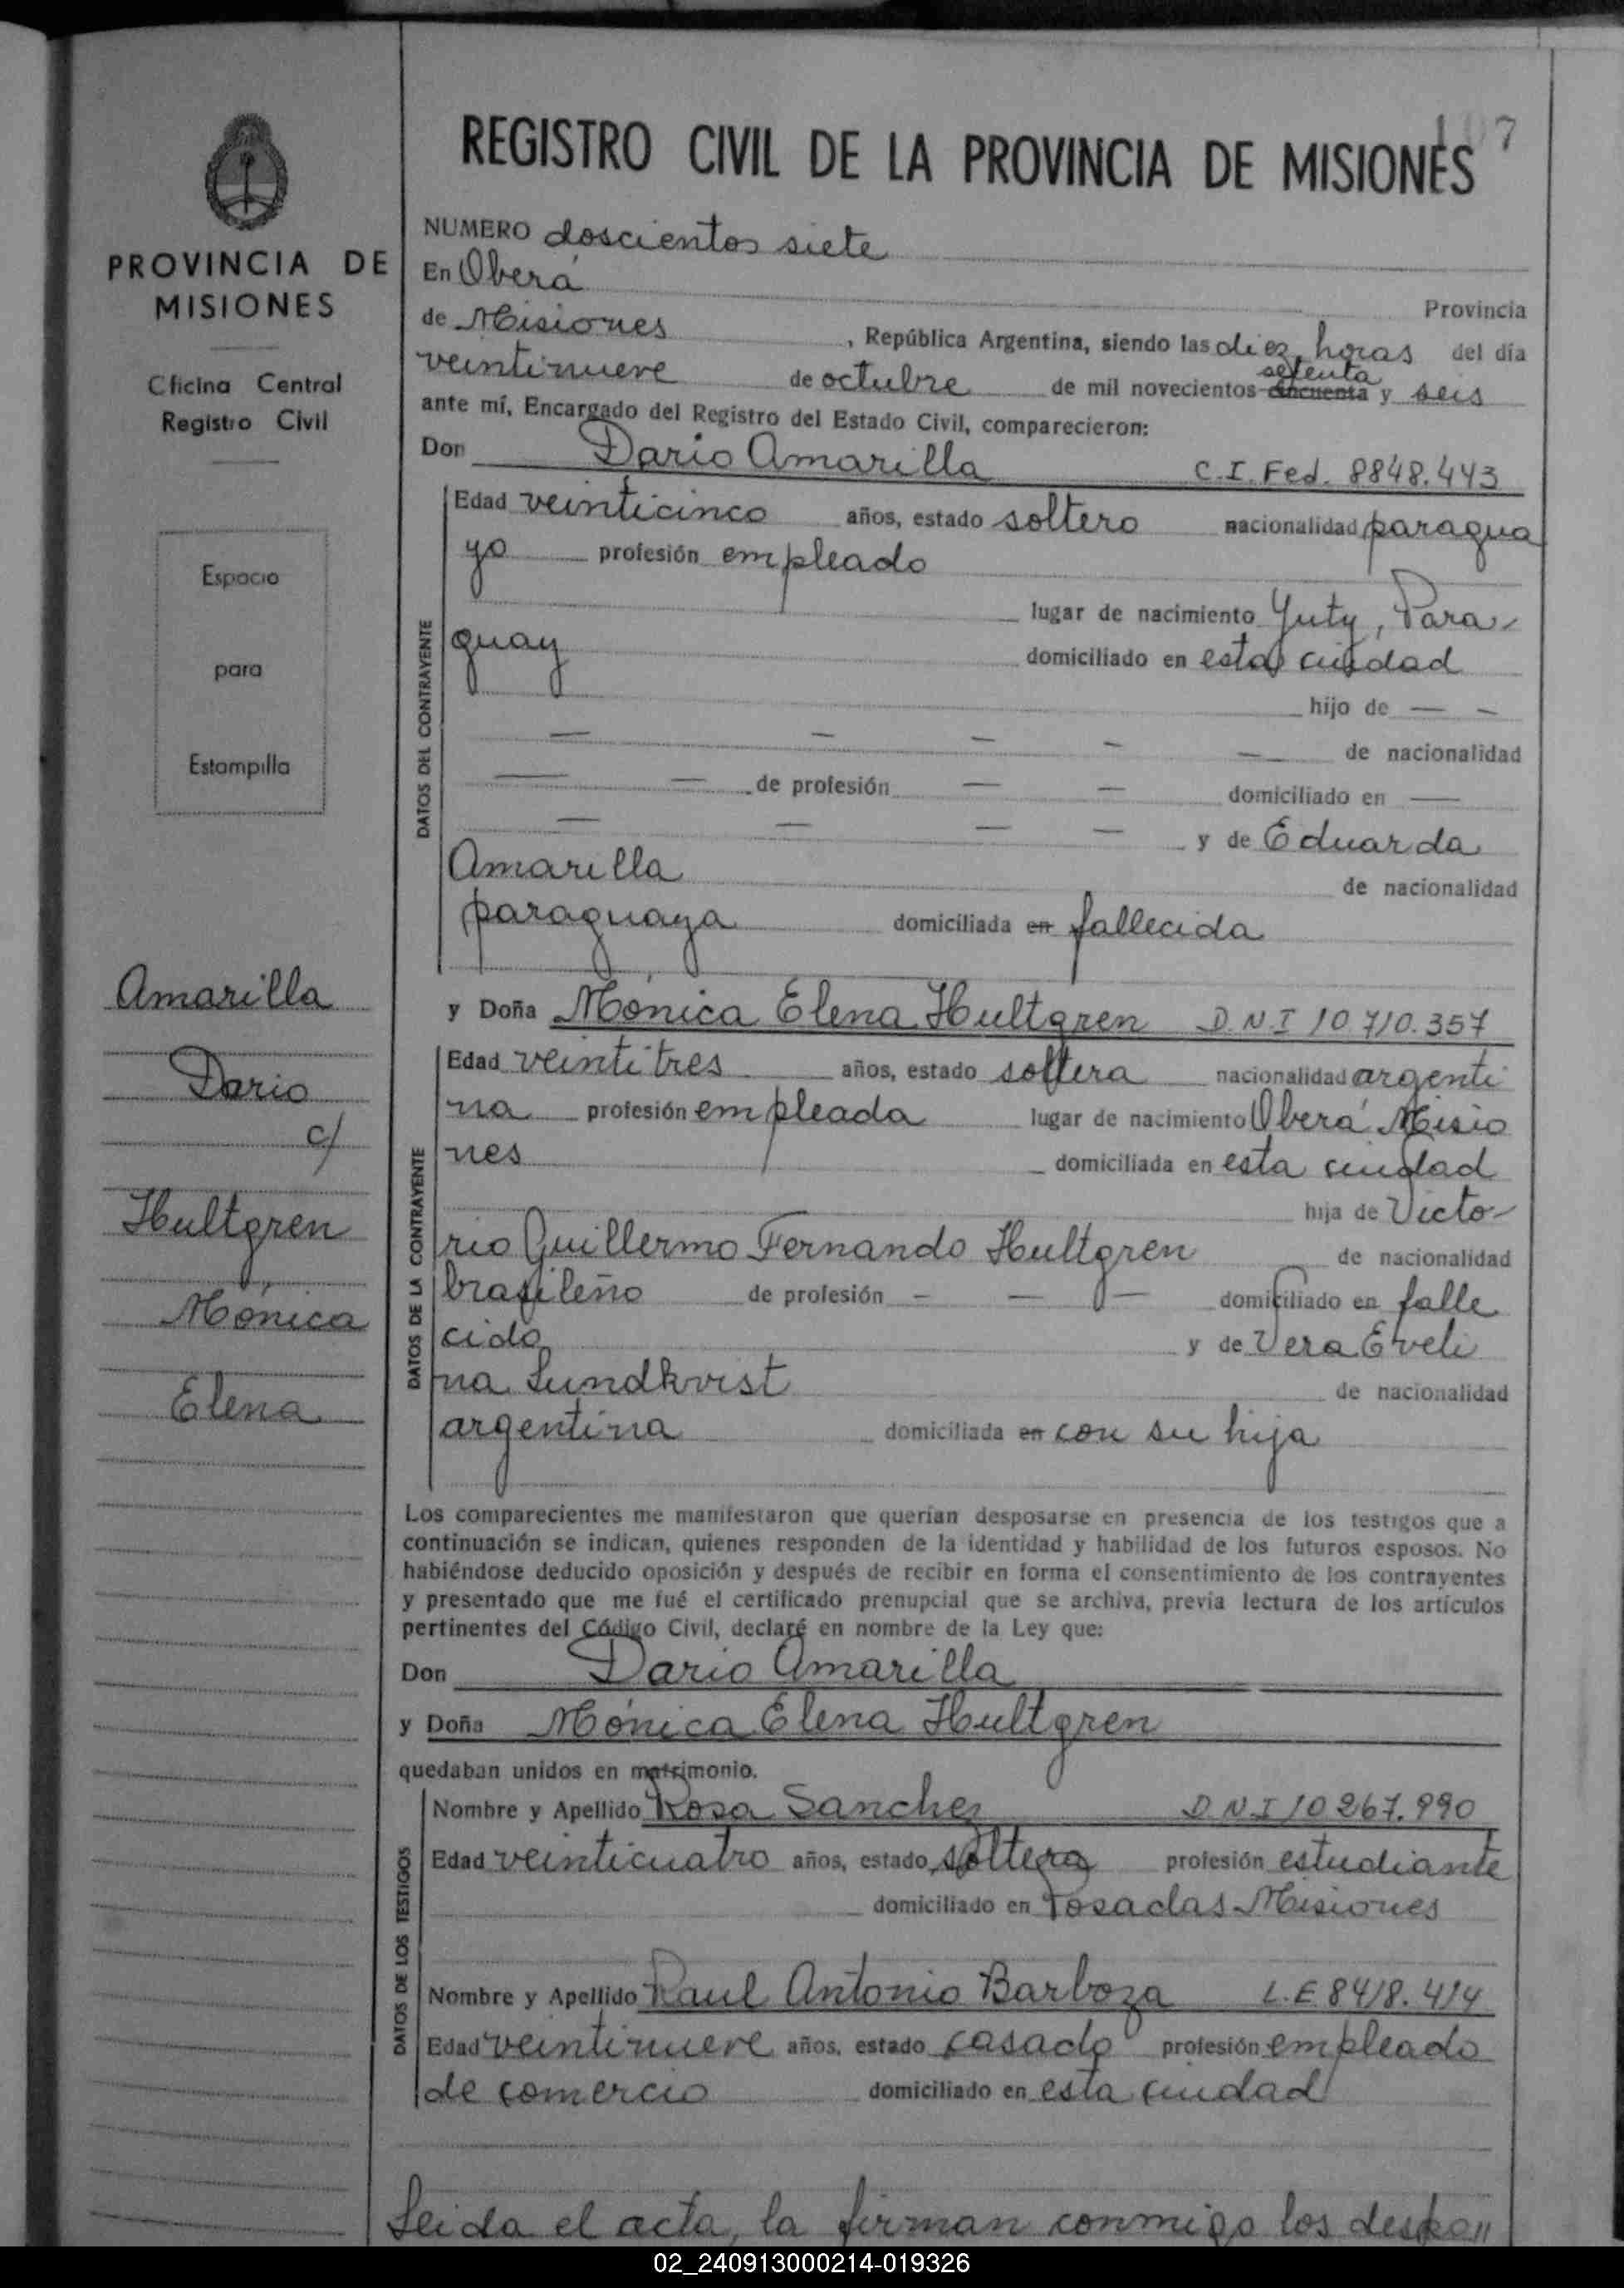 107
REGISTRO CIVIL DE LA PROVINCIA DE MISIONES
PROVINCIA DE
MISIONES
Oficina Central
Registro Civil
Espacio
para
Estampilla
Amarilla
Dario
c/
Hultgren
Mónica
Elena
NUMERO doscientos siete
En Oberá Provincia
de Misiones, República Argentina, siendo las diez horas del día
veintinueve de octubre de mil novecientos cincuenta setenta y seis
ante mí, Encargado del Registro del Estado Civil, comparecieron:
Don Dario Amarilla C.I. Fed. 8848.443
DATOS DEL CONTRAYENTE
Edad veinticinco años, estado soltero nacionalidad paragua
yo profesión empleado
lugar de nacimiento Yuty, Para
guay domiciliado en esta ciudad
hijo de — —
— — — — — de nacionalidad
— — de profesión — — domiciliado en —
— — — — y de Eduarda
Amarilla de nacionalidad
paraguaya domiciliada en fallecida
y Doña Mónica Elena Hultgren D.N.I 10 710.357
DATOS DE LA CONTRAYENTE
Edad veintitres años, estado soltera nacionalidad argenti
na profesión empleada lugar de nacimiento Oberá Misio
nes domiciliada en esta ciudad
hija de Victo
rio Guillermo Fernando Hultgren de nacionalidad
brasileño de profesión — — — domiciliado en falle
cido y de Vera Eveli
na Lundkvist de nacionalidad
argentina domiciliada en con su hija
Los comparecientes me manifestaron que querían desposarse en presencia de los testigos que a
continuación se indican, quienes responden de la identidad y habilidad de los futuros esposos. No
habiéndose deducido oposición y después de recibir en forma el consentimiento de los contrayentes
y presentado que me fué el certificado prenupcial que se archiva, previa lectura de los artículos
pertinentes del Código Civil, declaré en nombre de la Ley que:
Don Dario Amarilla
y Doña Mónica Elena Hultgren
quedaban unidos en matrimonio.
DATOS DE LOS TESTIGOS
Nombre y Apellido Rosa Sanchez D.N.I 10 267.990
Edad veinticuatro años, estado soltera profesión estudiante
domiciliado en Posadas Misiones
Nombre y Apellido Raul Antonio Barboza L.E. 8418.414
Edad veintinueve años, estado casado profesión empleado
de comercio domiciliado en esta ciudad
Leida el acta, la firman conmigo los despo"
02_240913000214-019326